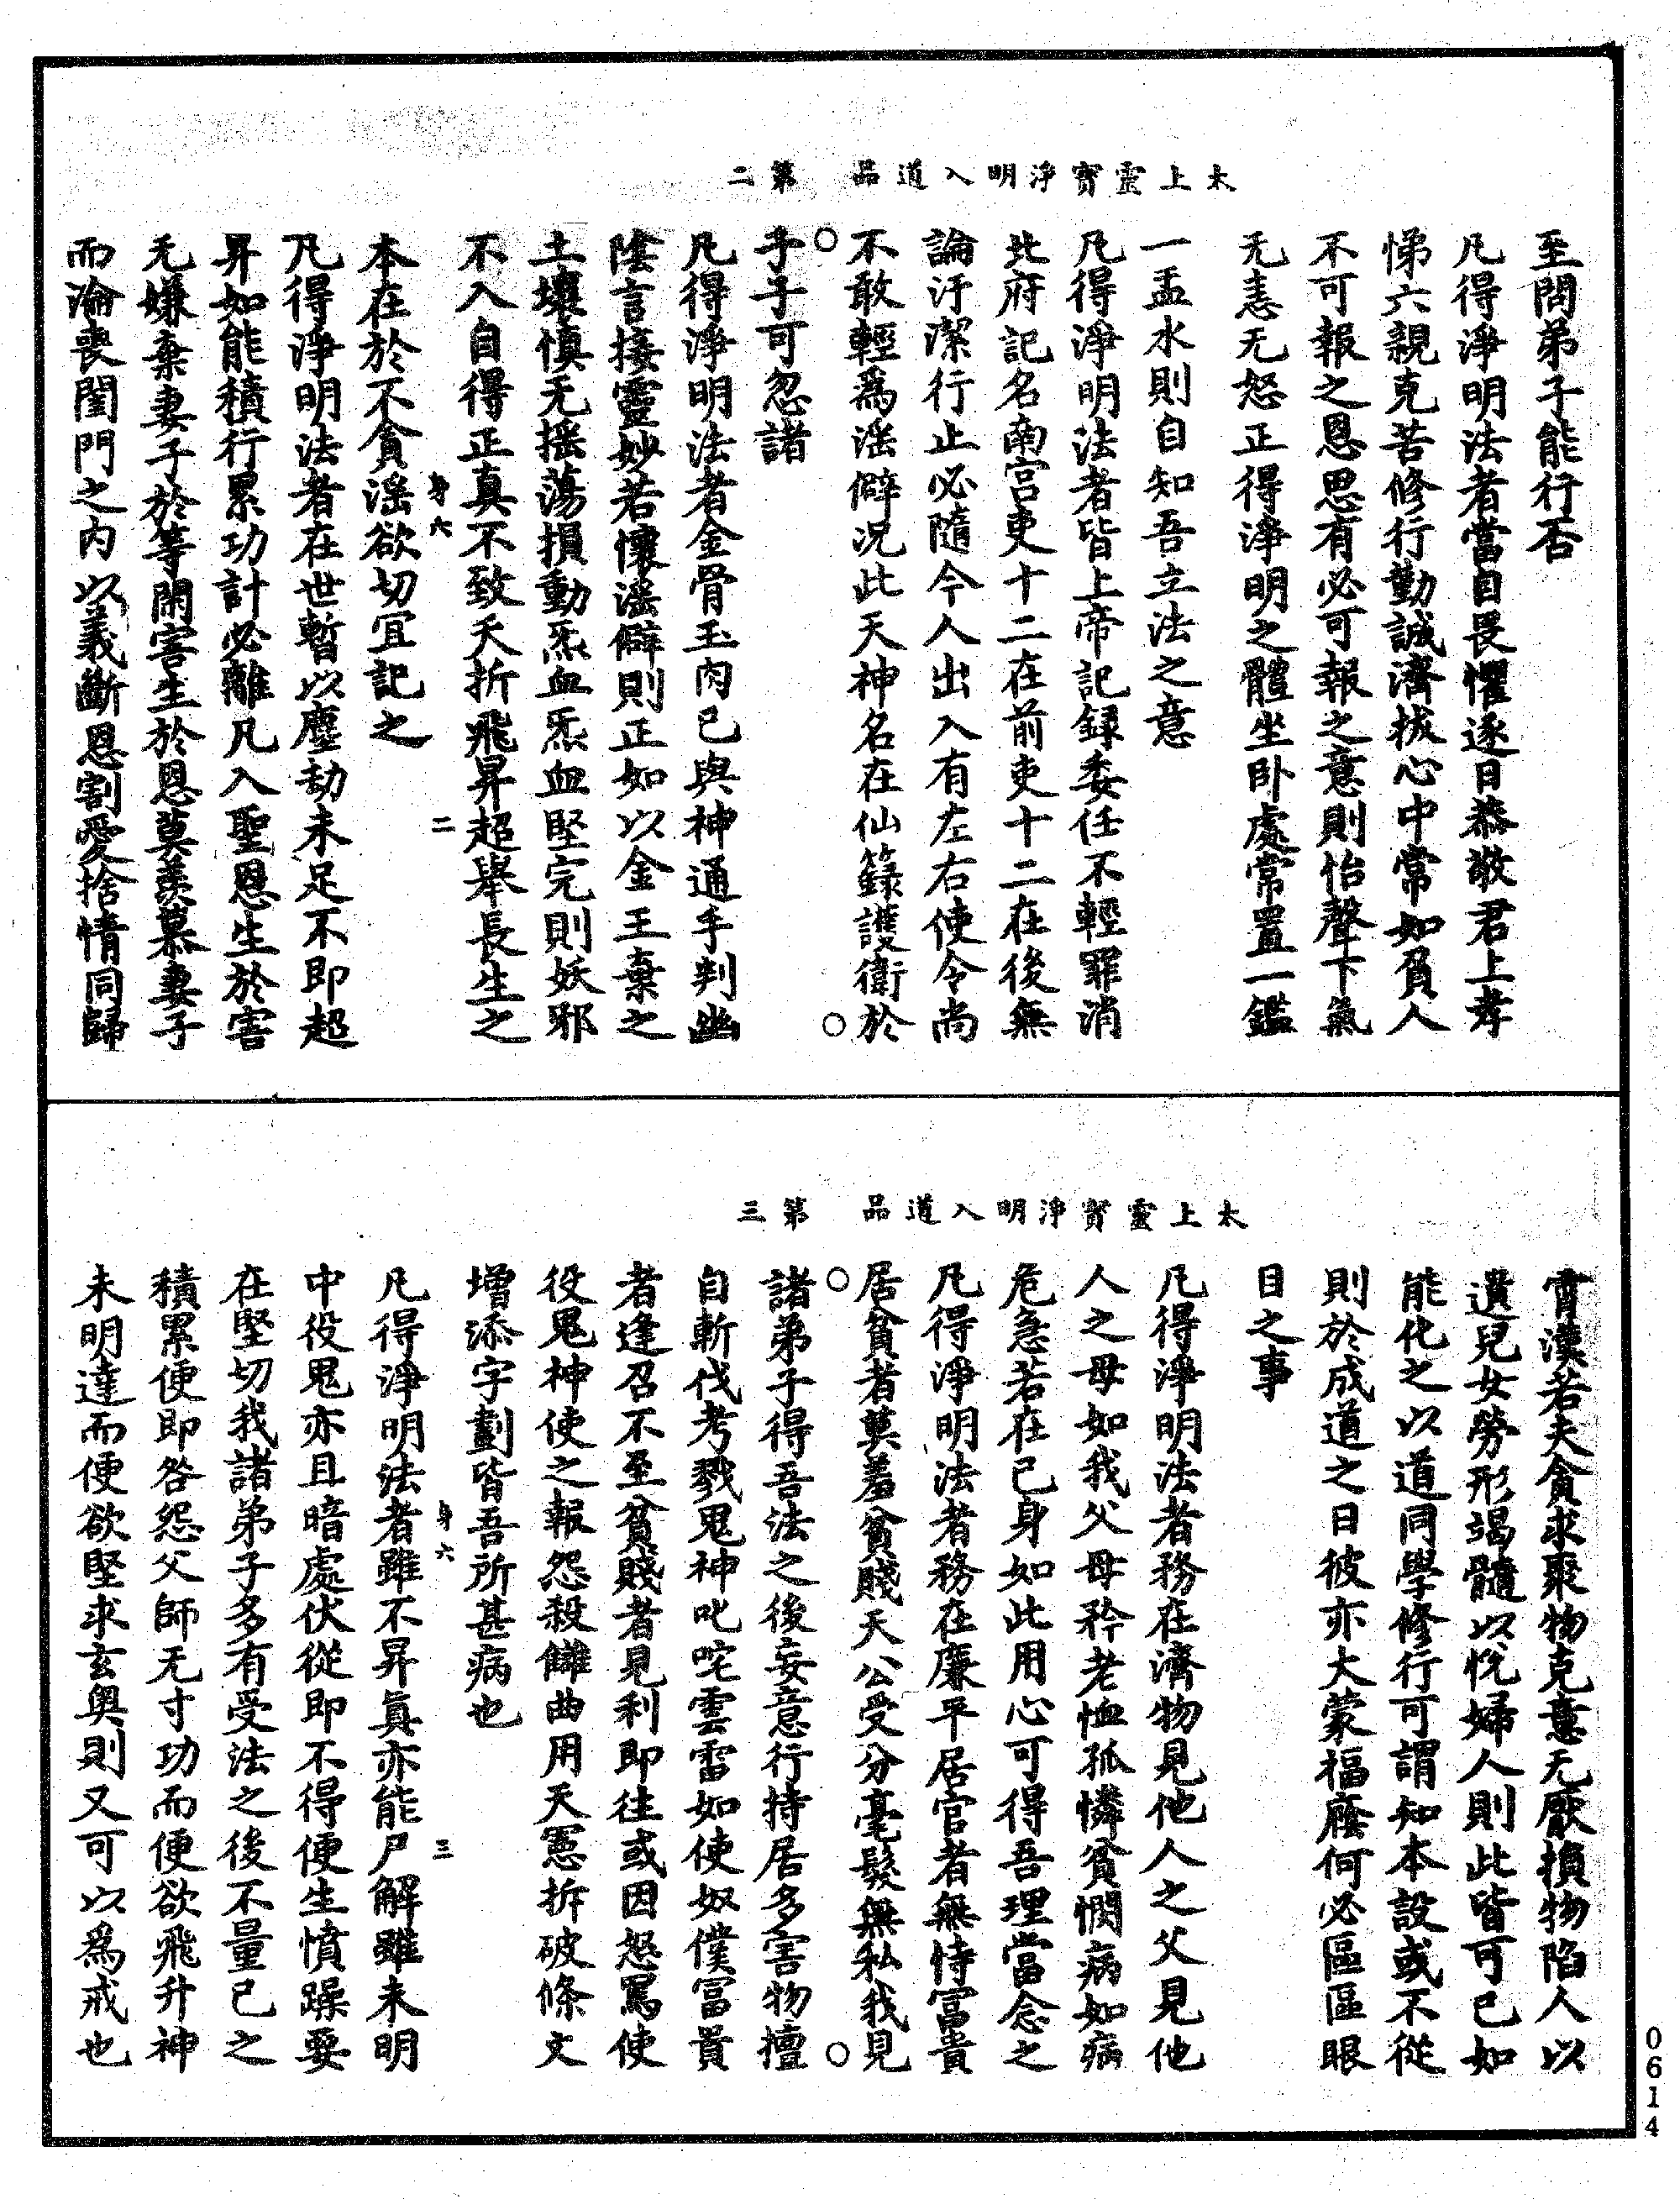 太上靈寳淨明入道品　第二
至問弟子能行否
凡得淨明法者當自畏懼逐日恭敬君上孝
悌六親克苦修行勤誠濟拔心中常如負人
不可報之恩思有必可報之意則怡聲下氣
无恚无怒正得淨明之體坐卧處常置一鑑
一盂水則自知吾立法之意
凡得淨明法者皆上帝記録委任不輕罪消
此府記名南宫吏十二在前吏十二在後無
論汙潔行止必隨今人出入有左右使令尚
不敢輕爲滛僻況此天神名在仙籙護衛於
子子可忽諸
凡得淨明法者金骨玉肉已與神通手判幽
陰言接靈妙若懷滛僻則正如以金玉棄之
土壤慎无揺蕩損動炁血炁血堅完則妖邪
不入自得正真不致夭折飛昇超舉長生之
本在於不貪滛欲切冝記之
身六　二
凡得淨明法者在世暫以塵劫未足不即超
昇如能積行累功計必離凡入聖恩生於害
无嫌棄妻子於等閑害生於恩莫羨慕妻子
而淪喪閨門之内以義斷恩割愛捨情同歸
太上靈寳淨明入道品　第三
霄漢若夫貪求聚物克意无厭損物陷人以
遺兒女勞形竭髓以悦婦人則此皆可已如
能化之以道同學修行可謂知本設或不從
則於成道之日彼亦大蒙福廕何必區區眼
目之事
凡得淨明法者務在濟物見他人之父見他
人之母如我父母矜老恤孤憐貧憫病如病
危急若在己身如此用心可得吾理當念之
凡得淨明法者務在廉平居官者無恃富貴
居貧者莫羞貧賤天公受分毫髮無私我見
諸弟子得吾法之後妄意行持居多害物擅
自斬伐考戮鬼神叱咤雲雷如使奴僕冨貴
者逢召不至貧賤者見利即往或因怒罵使
役鬼神使之報怨殺讎曲用天憲拆破條文
增添字劃皆吾所甚病也
凡得淨明法者雖不昇眞亦能尸解雖未明
身六　三
中役鬼亦且暗處伏從即不得便生憤躁要
在堅切我諸弟子多有受法之後不量已之
積累便即咎怨父師无寸功而便欲飛升神
未明達而便欲堅求玄奥則又可以爲戒也
0614